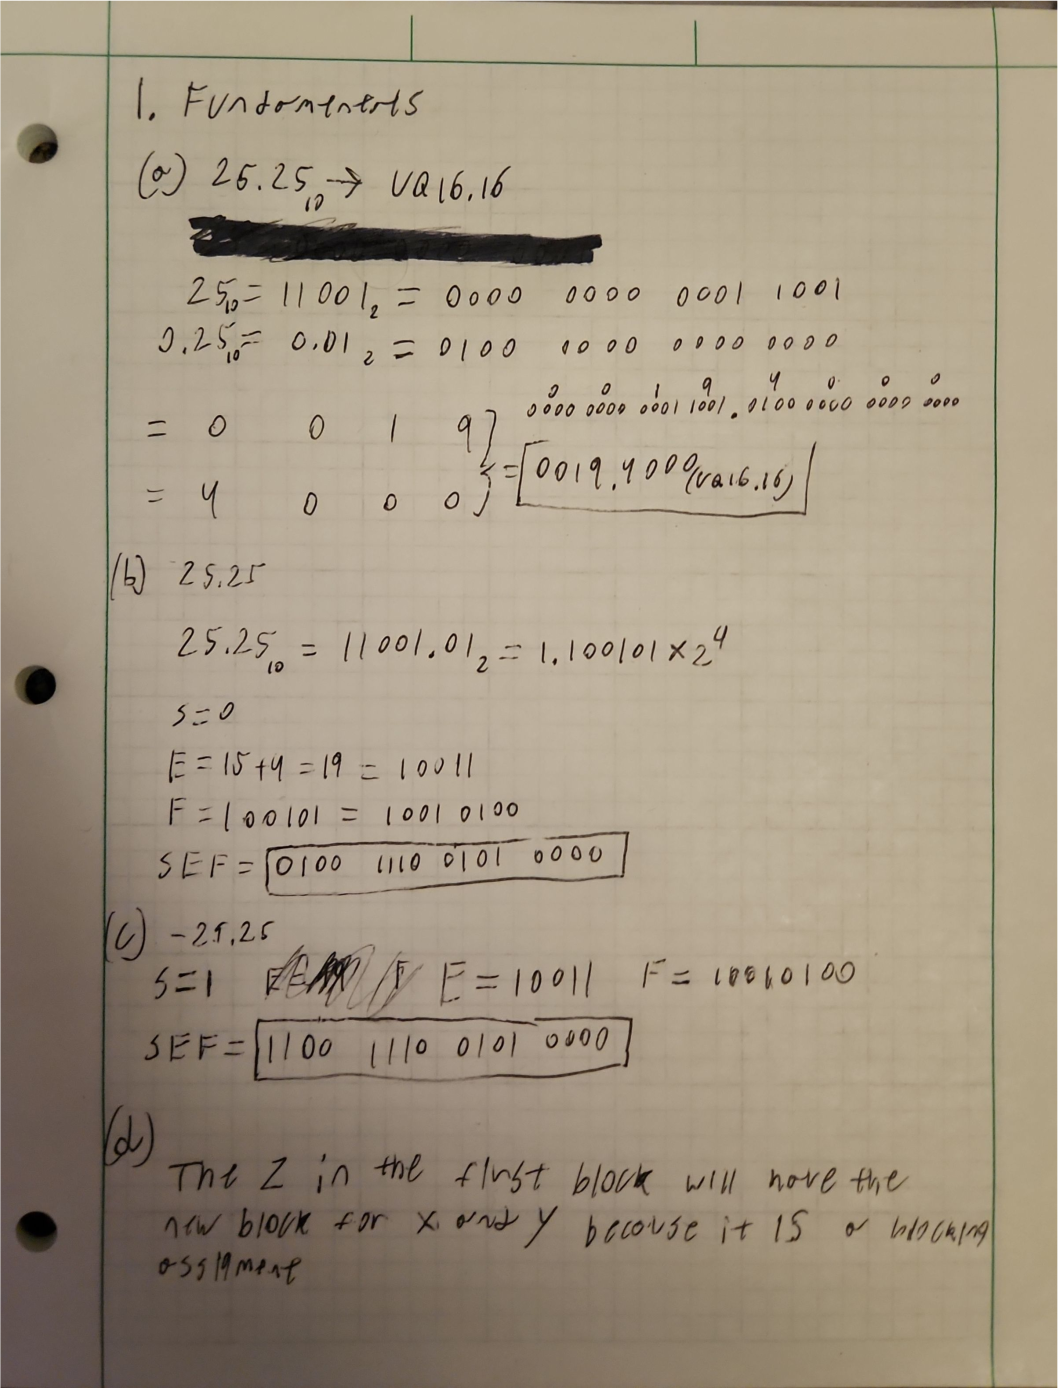 1. Fundaments
(a) 26.25₁₀ → UQ16.16
25₁₀ = 11001₂ = 0000 0000 0001 1001
0.25₁₀ = 0.01₂ = 0100 0000 0000 0000
0 0 1 9 4 0 0 0
0000 0000 0001 1001.0100 0000 0000 0000
= 0 0 1 9
= 4 0 0 0
} = 0019.4000(UQ16.16)
(b) 25.25
25.25₁₀ = 11001.01₂ = 1.100101 × 2⁴
S=0
E = 15+4 = 19 = 10011
F = 100101 = 1001 0100
SEF = 0100 1110 0101 0000
(c) -25.25
S=1 E = 10011 F = 10010100
SEF = 1100 1110 0101 0000
(d)
The Z in the first block will have the
new block for X and Y because it is a blocking
assigment